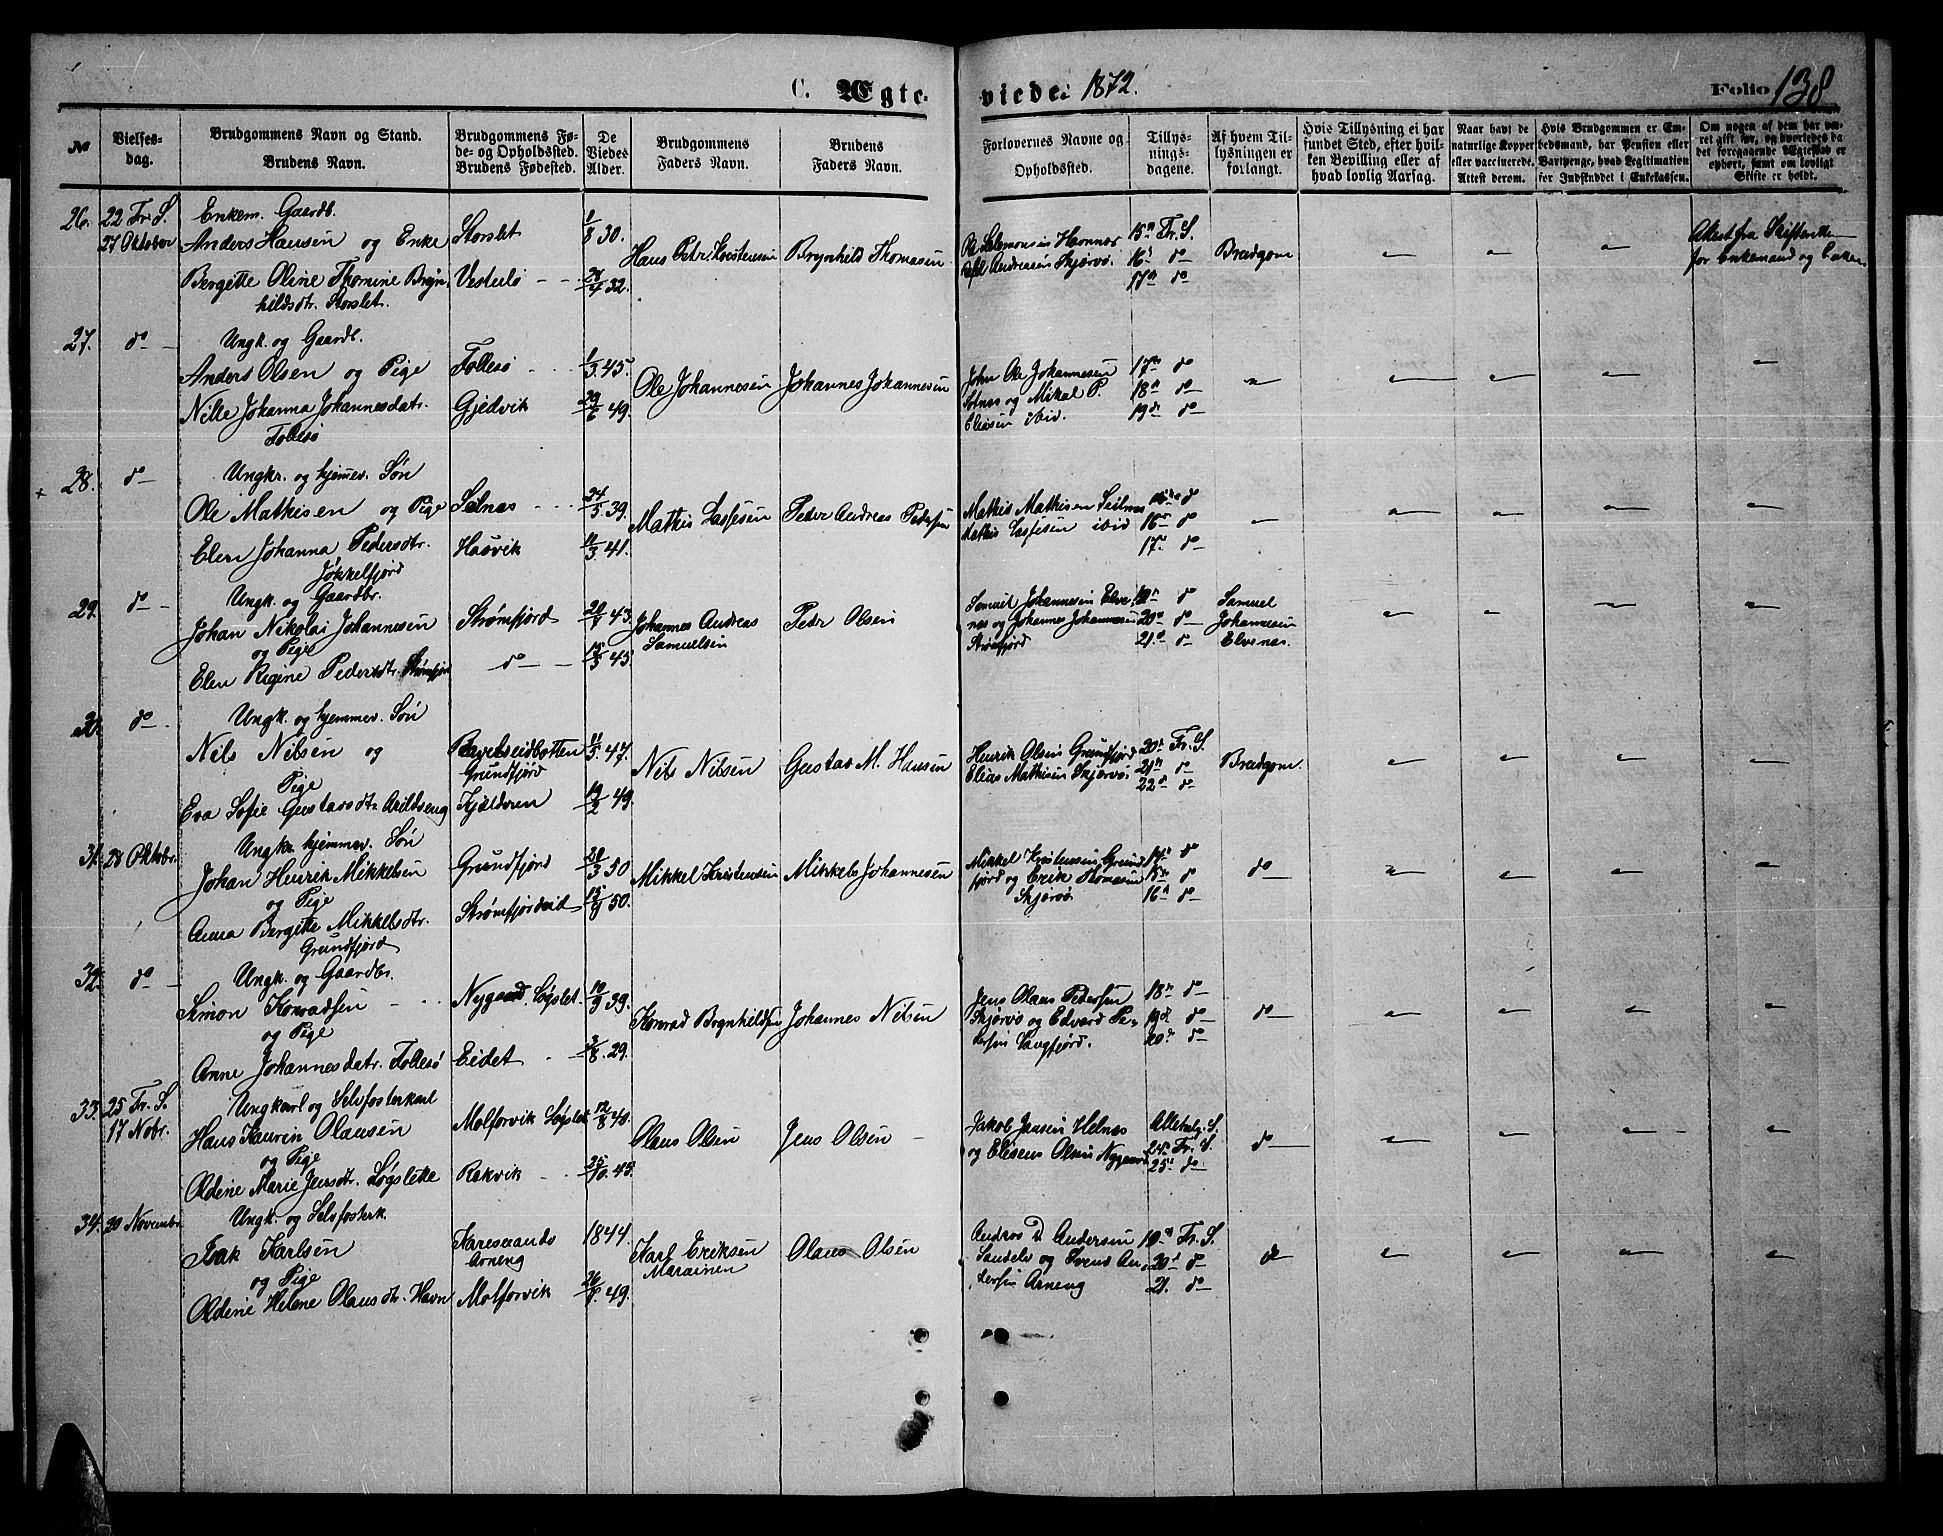 C. Ægte- viede. 1872. Folio 138
No
Vielses-
dag.
Brudgommens Navn og Stand.
Brudens Navn.
Brudgommens Fø-
de- og Opholdssted.
Brudens Fødested.
De
Viedes
Alder.
Brudgommens
Faders Navn.
Brudens
Faders Navn.
Forlovernes Navne og
Opholdssted.
Tillys-
nings-
dagene.
Af hvem Til-
lysningen er
forlangt.
Hvis Tillysning ei har
fundet Sted, efter hvil-
ken Bevilling eller af
hvad lovlig Aarsag.
Naar havt de
naturlige Kopper
eller vaccinerede.
Attest derom.
Hvis Brudgommen er Em-
bedsmand, har Pension eller
Vartpenge, hvad Legitimation
for Indskuddet i Enkekassen.
Om nogen af dem har væ-
ret gift før, og hvorledes da
det foregaaende Ægteskab er
ophørt, samt om lovligt
Skifte er holdt.
26. 22 Fr. S.
27 Oktober
Enkem. Gaardb.
Anders Hansen og Enke
Bergitte Oline Thomine Bryn-
hildsdtr. Storslet.
Storslet
Vesterlø
1/8 30.
24/4 32.
Hans Petr. Kvistensen
Brynhild Thomasen
Ole Salomonsen Havnnes
Andreasen Skjervø
15n Fr. S.
16d do
17n do
Brudgom
Attest fra Skifteretten
for Enkemand og Enken
27. do
Ungk. og Gaardb.
Anders Olsen og Pige
Nille Johanna Johannesdatr.
Follesø
Follesø
Gjedvik
1/3 45.
29/6 49.
Ole Johannesen
Johannes Johannesen
John Ole Johannesen
Solnes og Mikal P.
Eliasen ibid.
17n do
18n do
19de do
28. do
Ungkr. og hjemmev. Søn
Ole Mathisen og Pige
Elen Johanna Pedersdtr.
Jøkkelfjord
Seilnes
Haavik
24/5 39.
11/3 41.
Mathis Lassesen
Peder Andreas Pedersen
Mathis Mathisen Seilnes
Mathis Lassesen ibid
15de do
16n do
17. do
29. do
Ungk. og Gaardbr.
Johan Nikolai Johannesen
og Pige
Elen Regine Pedersdtr. Strømfjord
Strømfjord
do
43.
15/3 45
Johannes Andreas
Samuelsen
Peder Olsen
Samuel Johannesen Elve-
nes og Johannes Johannesen
Strømfjord
19n do
20n do
21d do
Samuel
Johannesen
Elvenes
30. do
Ungk. og hjemmev. Søn
Nils Nilsen og
Pige
Eva Sofie Gustavsdtr. Arildseng
Ravelseidbotten
Grundfjord
Kjelderen
11/3 47.
19/2 49.
Nils Nilsen
Gustav M. Hansen
Henrik Olsen Grundfjord
Elias Mathisen Skjervø
20n Fr. S.
21n do
22d do
Brudgom.
31. 28 Oktobr.
Ungkr. hjemmev. Søn
Johan Henrik Mikkelsen
og Pige
Anna Bergitte Mikkelsdtr.
Grundfjord
Grundfjord
Strømfjordeid
21/3 50
15/9 50.
Mikkel Kristensen
Mikkels Johannesen
Mikkel Kristensen Grund-
fjord og Erik Thomasen
Skjervø
14n do
15n do
16n do
do
32. do
Ungk. og Gaardbr.
Simon Konradsen
og Pige
Anne Johannesdatr. Follesø
Nygaard, Løgslet
Eidet
10/9 39.
3/8. 29.
Konrad Brynhildsen
Johannes Nilsen
Jens Olaus Pedersen
Skjervø og Edvard Pe-
dersen Langfjord.
18n do
19d. do
20de do
do
33. 25 Fr. S.
17 Nobr.
Ungkarl og Selvfosterkarl
Hans Kaurin Olausen
og Pige
Oldine Marie Jensdtr. Løgslette
Molforvik Løgslet
Rakvik
12/8 40.
25/10. 45.
Olaus Olsen
Jens Olsen
Jakob Jensen Helnes
og Elesens Olsen Nygaard
Allehelg. S.
24n Fr. S.
25d do
do
34. 20 Novembr.
Ungk. og Selvfosterk.
Isak Karlsen
og Pige
Oldine Helene Olausdtr. Havn
Karesuando
Arneng
Molforvik
1844.
26/ 49.
Karl Eriksen
Marainen
Olaus Olsen
Andros D. Andersen
Sandelv og Svend An-
dersen Arneng
19n Fr. S.
20d do
21. do
do